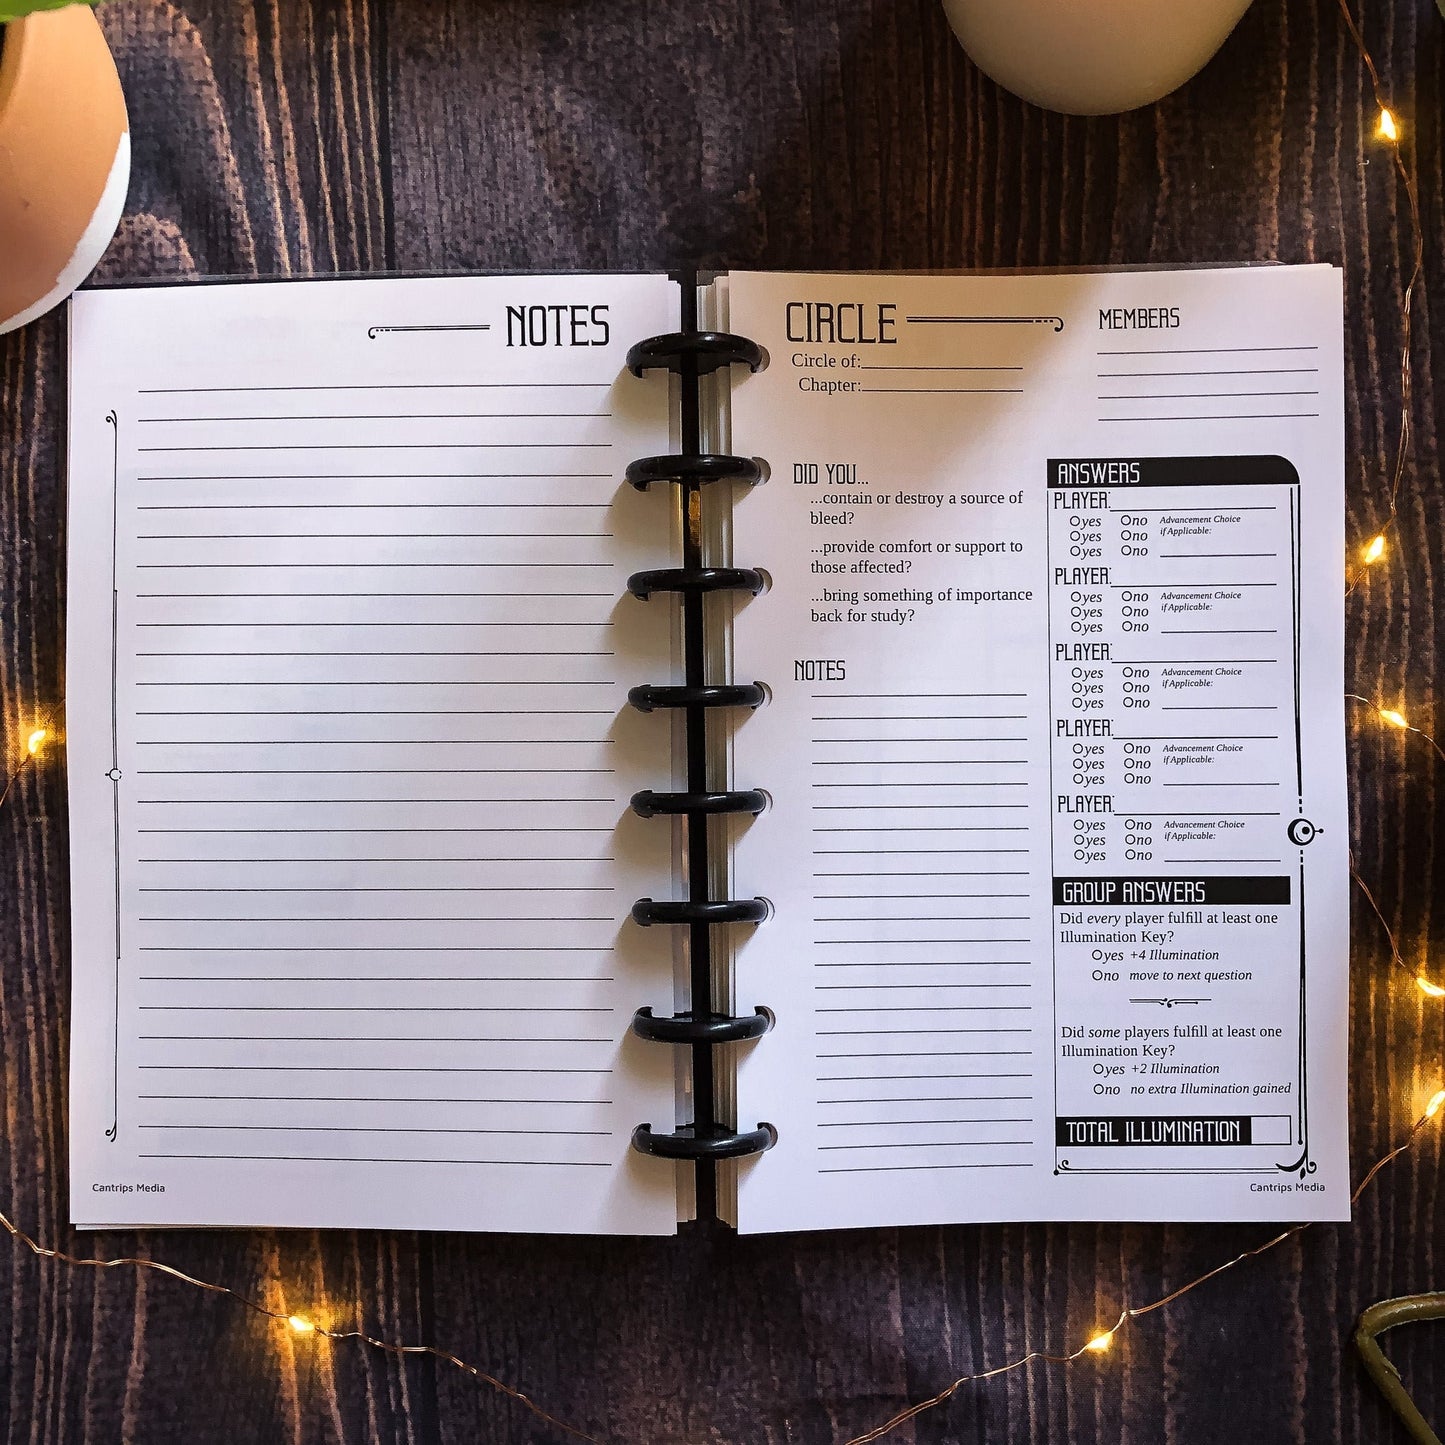 NOTES
Cantrips Media
CIRCLE
Circle of:
Chapter:
MEMBERS
DID YOU...
...contain or destroy a source of
bleed?
...provide comfort or support to
those affected?
...bring something of importance
back for study?
NOTES
ANSWERS
PLAYER:
yes no Advancement Choice
yes no if Applicable:
yes no
PLAYER:
yes no Advancement Choice
yes no if Applicable:
yes no
PLAYER:
yes no Advancement Choice
yes no if Applicable:
yes no
PLAYER:
yes no Advancement Choice
yes no if Applicable:
yes no
PLAYER:
yes no Advancement Choice
yes no if Applicable:
yes no
GROUP ANSWERS
Did every player fulfill at least one
Illumination Key?
yes +4 Illumination
no move to next question
Did some players fulfill at least one
Illumination Key?
yes +2 Illumination
no no extra Illumination gained
TOTAL ILLUMINATION
Cantrips Media